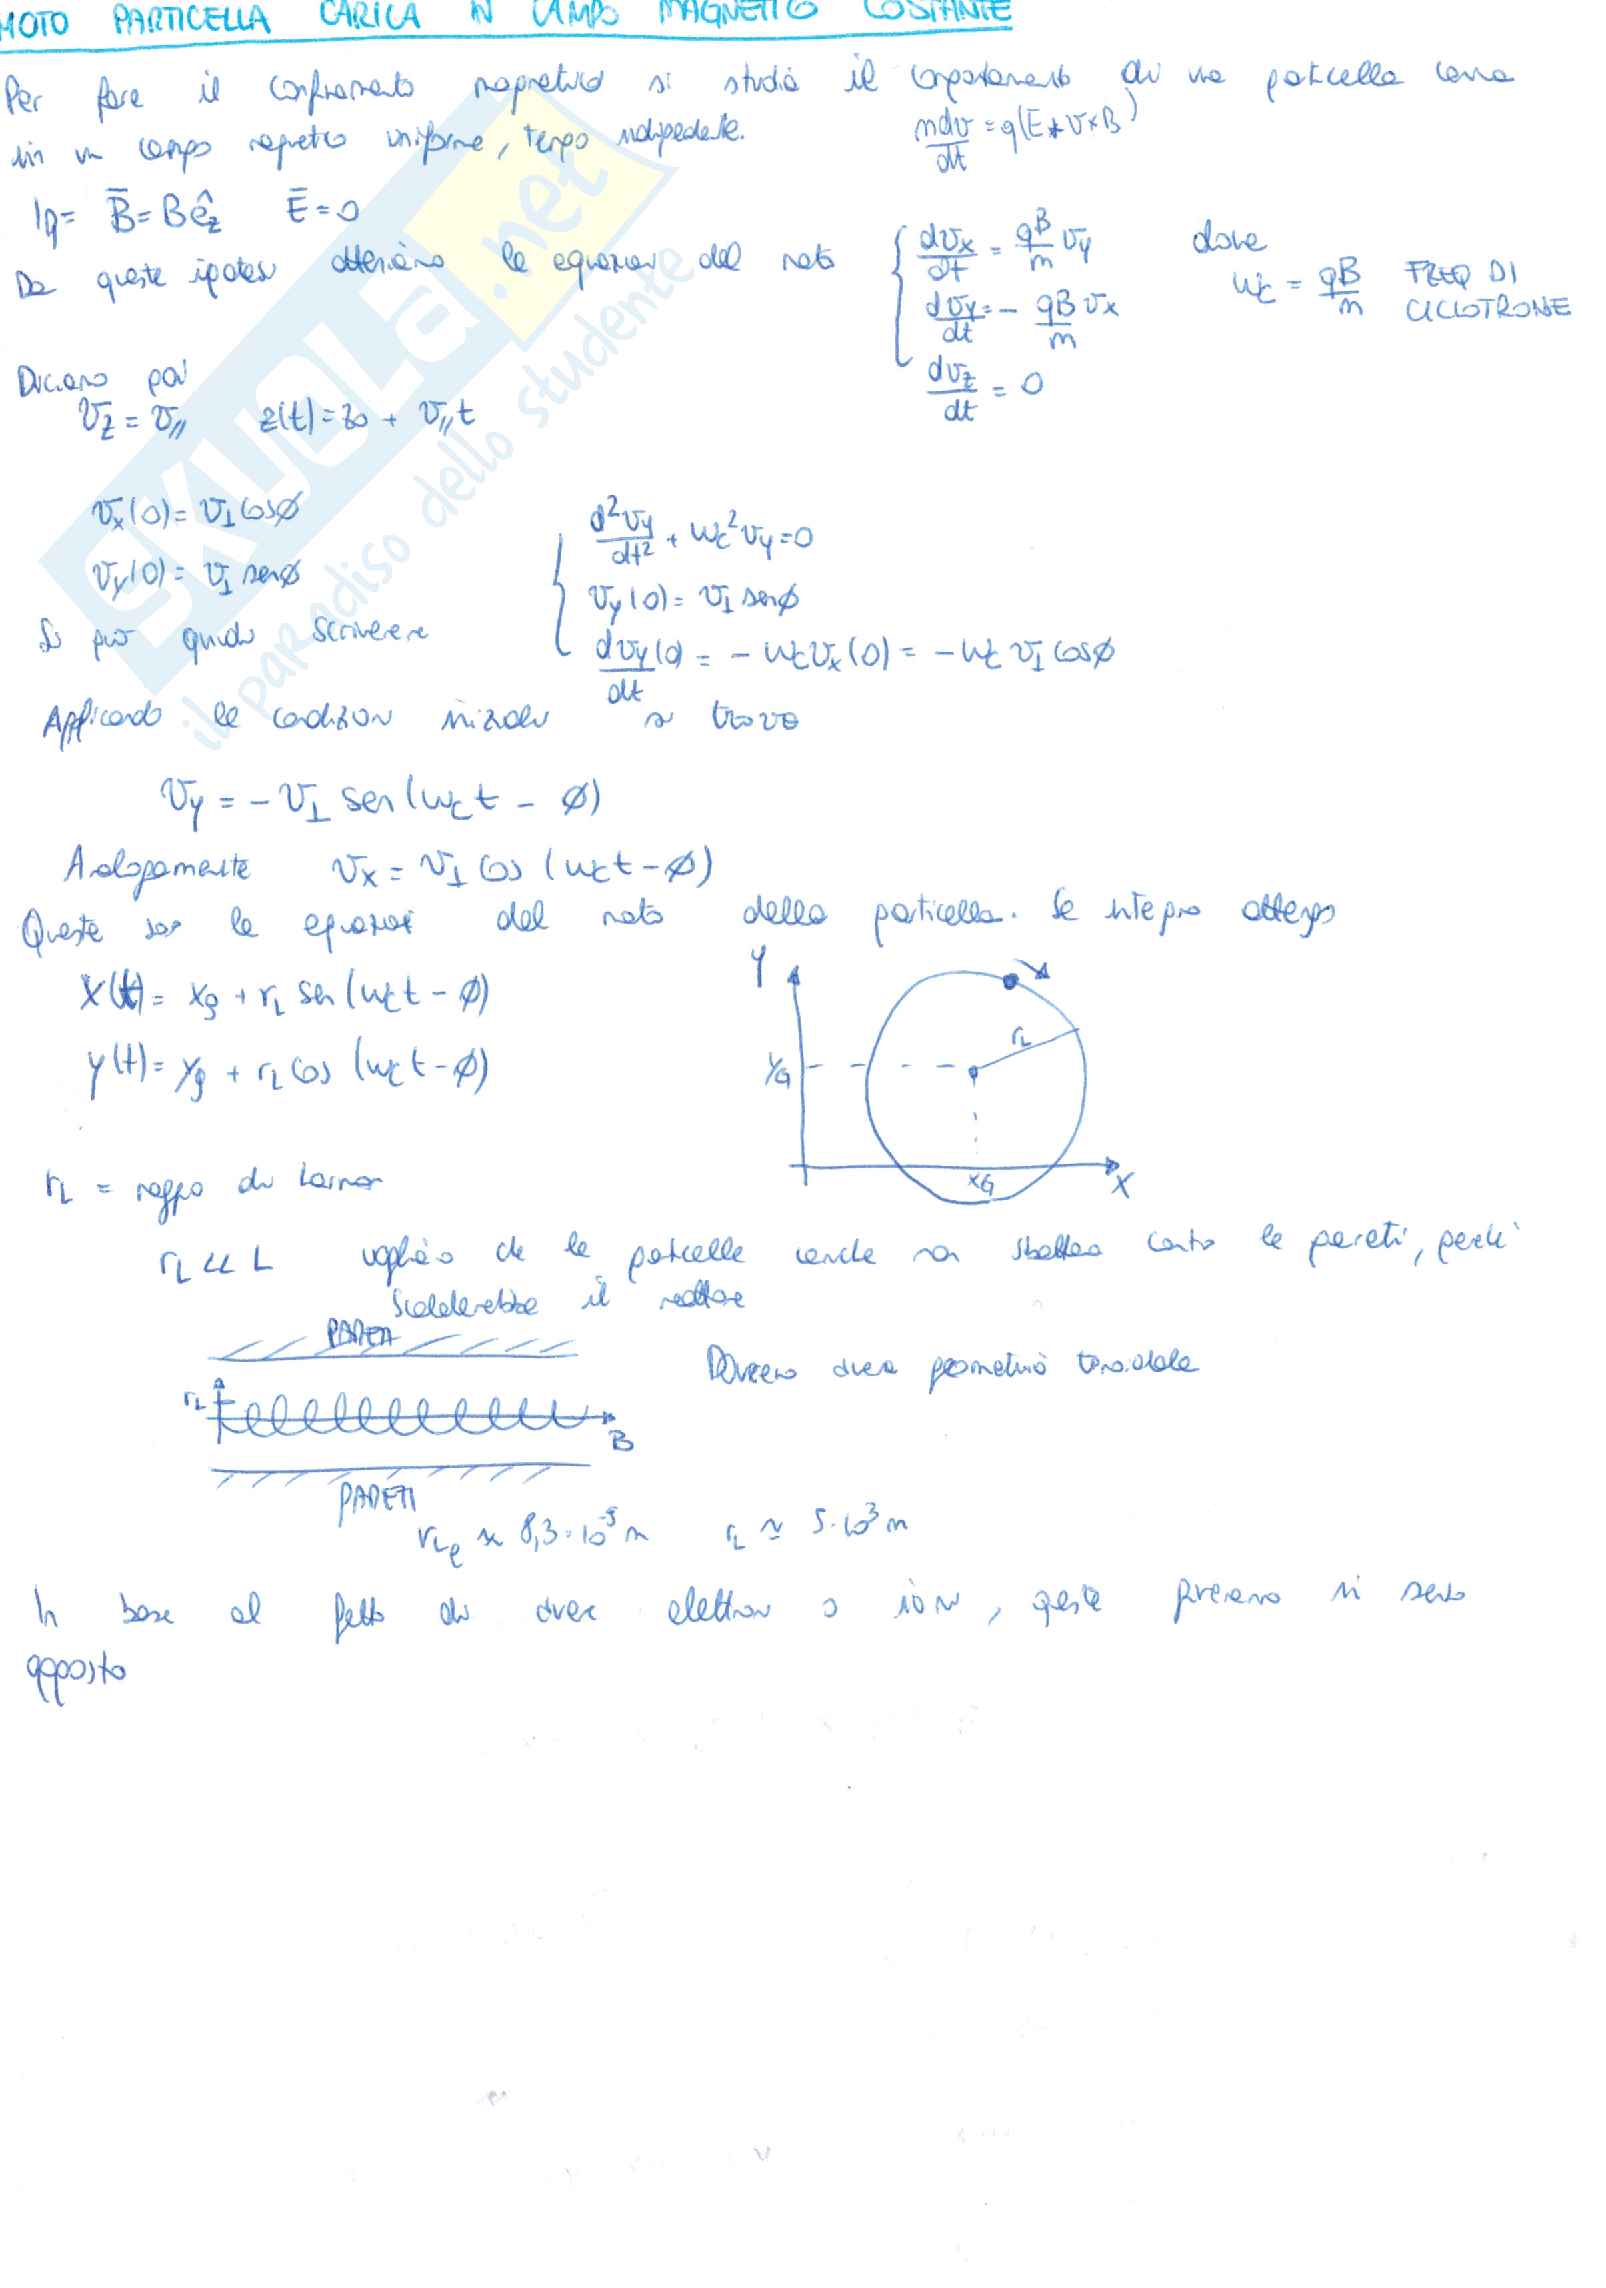 MOTO PARTICELLA CARICA IN CAMPO MAGNETICO COSTANTE
Per fare il confinamento magnetico si studia il comportamento di una particella carica
in un campo magnetico uniforme, tempo indipendente. m dv/dt = q(E + v×B)
Ip= B̄ = B ê_z Ē = 0
Da queste ipotesi otteniamo le equazioni del moto
dv_x/dt = qB/m v_y
dv_y/dt = - qB/m v_x
dv_z/dt = 0
dove
ω_c = qB/m FREQ DI CICLOTRONE
Diciamo poi
v_z = v_// z(t) = z_0 + v_// t
v_x(0) = v_⊥ cosφ
v_y(0) = v_⊥ senφ
Si può quindi scrivere
d²v_y/dt² + ω_c² v_y = 0
v_y(0) = v_⊥ senφ
dv_y(0)/dt = - ω_c v_x(0) = - ω_c v_⊥ cosφ
Applicando le condizioni iniziali si trova
v_y = - v_⊥ sen(ω_c t - φ)
Analogamente v_x = v_⊥ cos(ω_c t - φ)
Queste sono le equazioni del moto della particella. Se integro ottengo
x(t) = x_g + r_L sen(ω_c t - φ)
y(t) = y_g + r_L cos(ω_c t - φ)
Y
r_L
Y_G
X_G
X
r_L = raggio di Larmor
r_L << L vogliamo che le particelle cariche non sbattano contro le pareti, perché
scalderebbe il reattore
PARETI
r_L
B
PARETI
Dovremo avere geometria toroidale
r_Le ≈ 8,3·10⁻⁵ m r_L ≈ 5·10³ m
In base al fatto di avere elettroni o ioni, queste gireranno in senso
opposto
SKUOLA.net
il paradiso dello studente